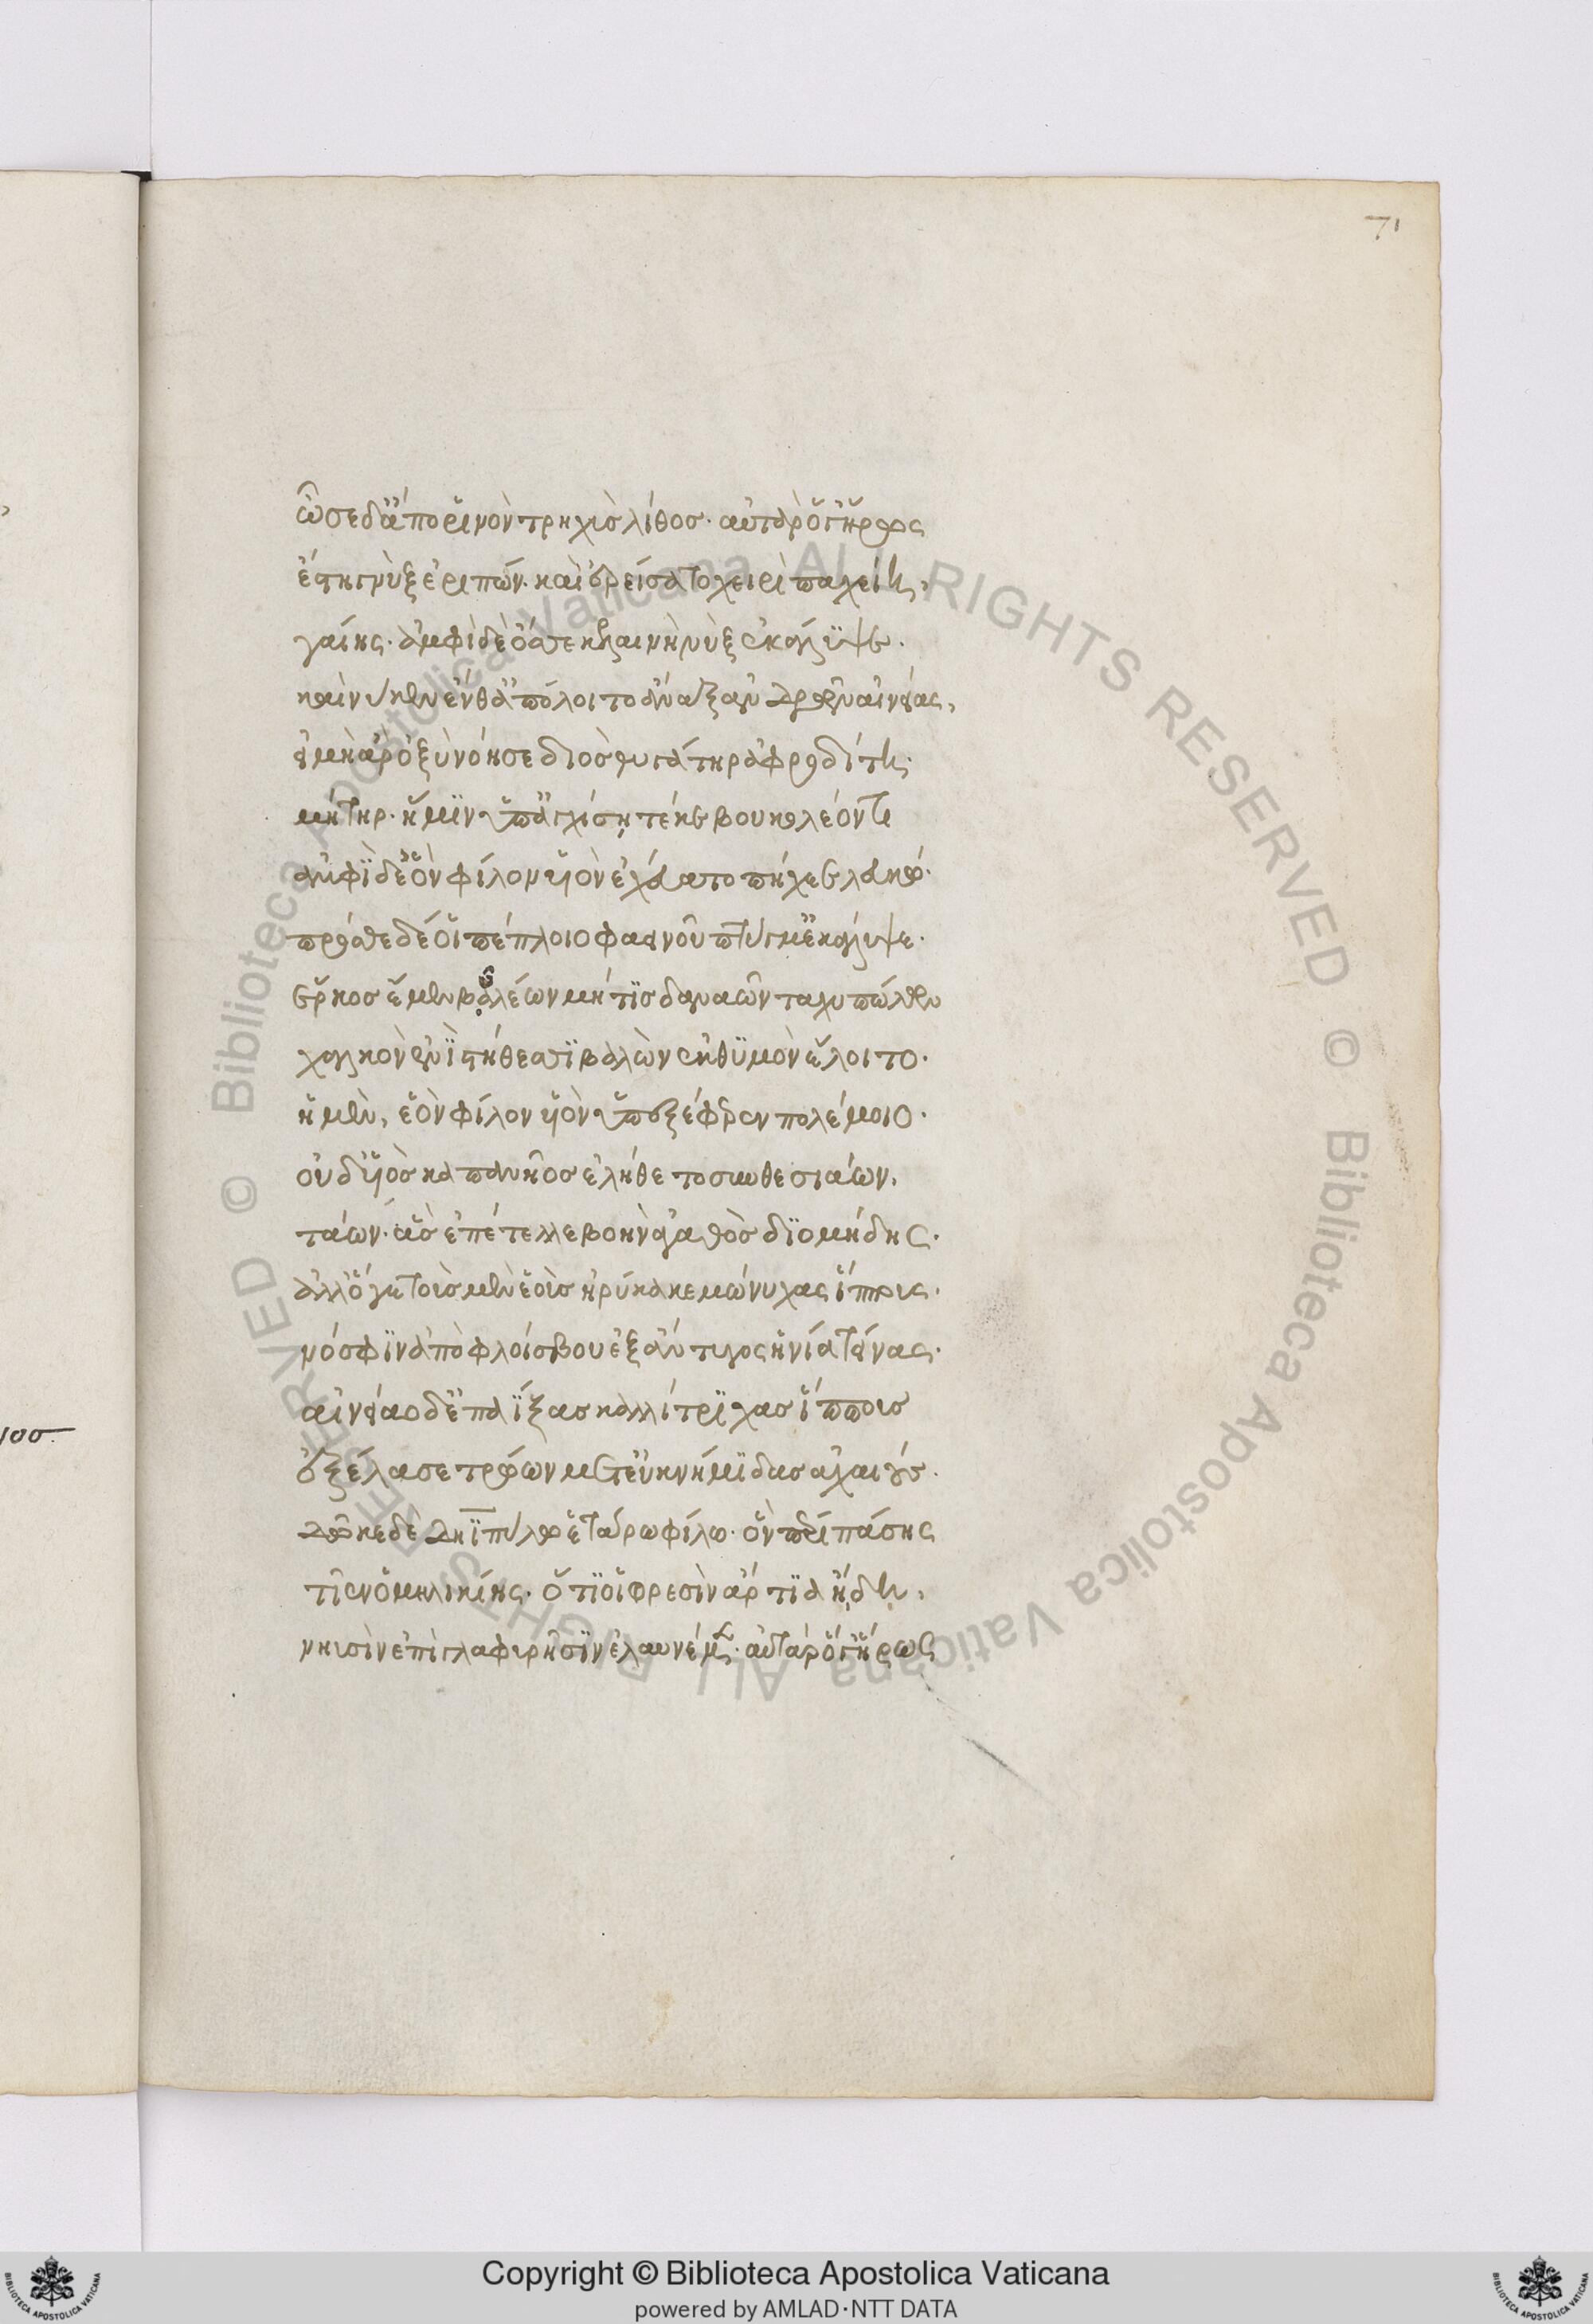 71
ὦσε δ' ἄπο ῥινὸν τρηχὺσ λίθοσ· αὐτὰρ ὅγ' ἥρως
ἔστη γνὺξ ἐριπών· καὶ ἐρείσατο χειρὶ παχείη,
γαίης· ἀμφὶ δὲ ὄσσε κελαινὴ νὺξ ἐκάλυψεν·
καί νύ κεν ἔνθ' ἀπόλοιτο ἄναξ ἀνδρῶν αἰνείας,
εἰ μὴ ἄρ' ὀξὺ νόησε διὸσ θυγάτηρ ἀφροδίτη·
μήτηρ· ἥ μιν ὑπ' ἀγχίσῃ τέκε βουκολέοντι
ἀμφὶ δ' ἑὸν φίλον υἱὸν ἐχεύατο πήχεε λευκώ·
πρόσθε δέ οἱ πέπλοιο φαεινοῦ πτύγμ' ἐκάλυψε·
ἕρκοσ ἔμεν βελέων μή τισ δαναῶν ταχυπώλων
χαλκὸν ἐνὶ στήθεσσι βαλὼν ἐκ θυμὸν ἕλοιτο·
ἡ μὲν, ἑὸν φίλον υἱὸν ὑπεξέφερεν πολέμοιο·
οὐδ' υἱὸσ καπανῆοσ ἐλήθετο συνθεσιάων,
τάων· ἃσ ἐπέτελλε βοὴν ἀγαθὸσ διομήδης·
ἀλλ' ὅγε τοὺσ μὲν ἑοὺσ ἠρύκακε μώνυχας ἵππους·
νόσφιν ἀπὸ φλοίσβου ἐξ ἄντυγος ἡνία τείνας·
αἰνείαο δ' ἐπαΐξασ καλλίτριχασ ἵππουσ
ἐξέλασε τρώων μετ' ἐϋκνήμιδασ ἀχαιούσ·
δῶκε δὲ δηϊπύλω ἑτάρω φίλω· ὃν περὶ πάσης
τῖεν ὁμηλικίης· ὅτι οἱ φρεσὶν ἄρτια ᾔδη,
νηυσὶν ἐπὶ γλαφυρῇσιν ἐλαυνέμεν· αὐτὰρ ὅγ' ἥρως
Copyright © Biblioteca Apostolica Vaticana
powered by AMLAD·NTT DATA
© Biblioteca Apostolica Vaticana ALL RIGHTS RESERVED
© Biblioteca Apostolica Vaticana ALL RIGHTS RESERVED